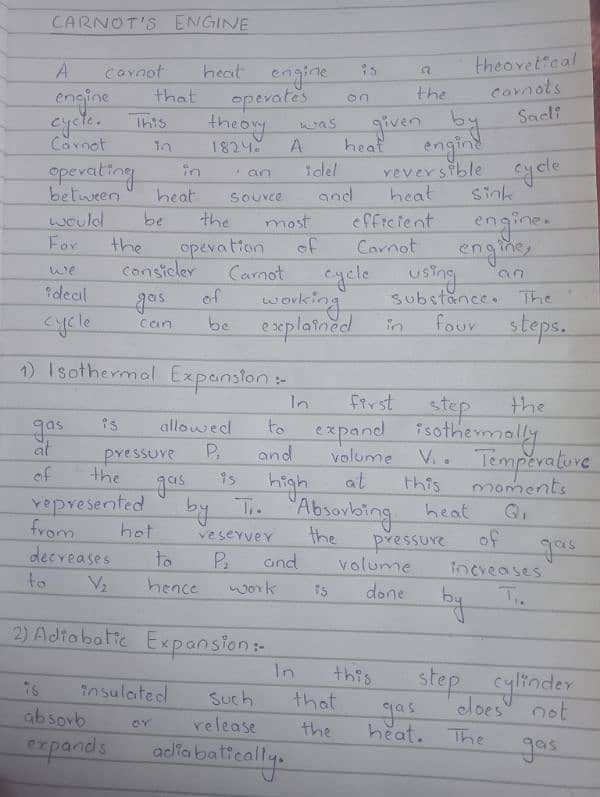 CARNOT'S ENGINE
A Carnot heat engine is a theoretical
engine that operates on the carnots
cycle. This theory was given by Sadi
Carnot in 1824. A heat engine
operating in an idel reversible cycle
between heat source and heat sink
would be the most efficient engine.
For the operation of Carnot engine,
we consider Carnot cycle using an
ideal gas of working substance. The
cycle can be explained in four steps.
1) Isothermal Expansion :-
In first step the
gas is allowed to expand isothermally
at pressure P₁ and volume V₁. Temperature
of the gas is high at this moments
represented by T₁. Absorbing heat Q₁
from hot reserver the pressure of gas
decreases to P₂ and volume increases
to V₂ hence work is done by T₁.
2) Adiabatic Expansion :-
In this step cylinder
is insulated such that gas does not
absorb or release the heat. The gas
expands adiabatically.